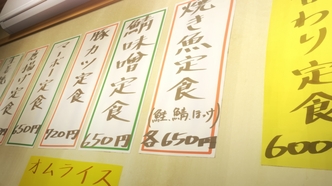 わり定食
600
焼き魚定食
(鮭、鯖、ほっけ)
各650円
鯖味噌定食
650円
豚カツ定食
650円
マーボー定食
720円
定食
650円
定食
オムライス